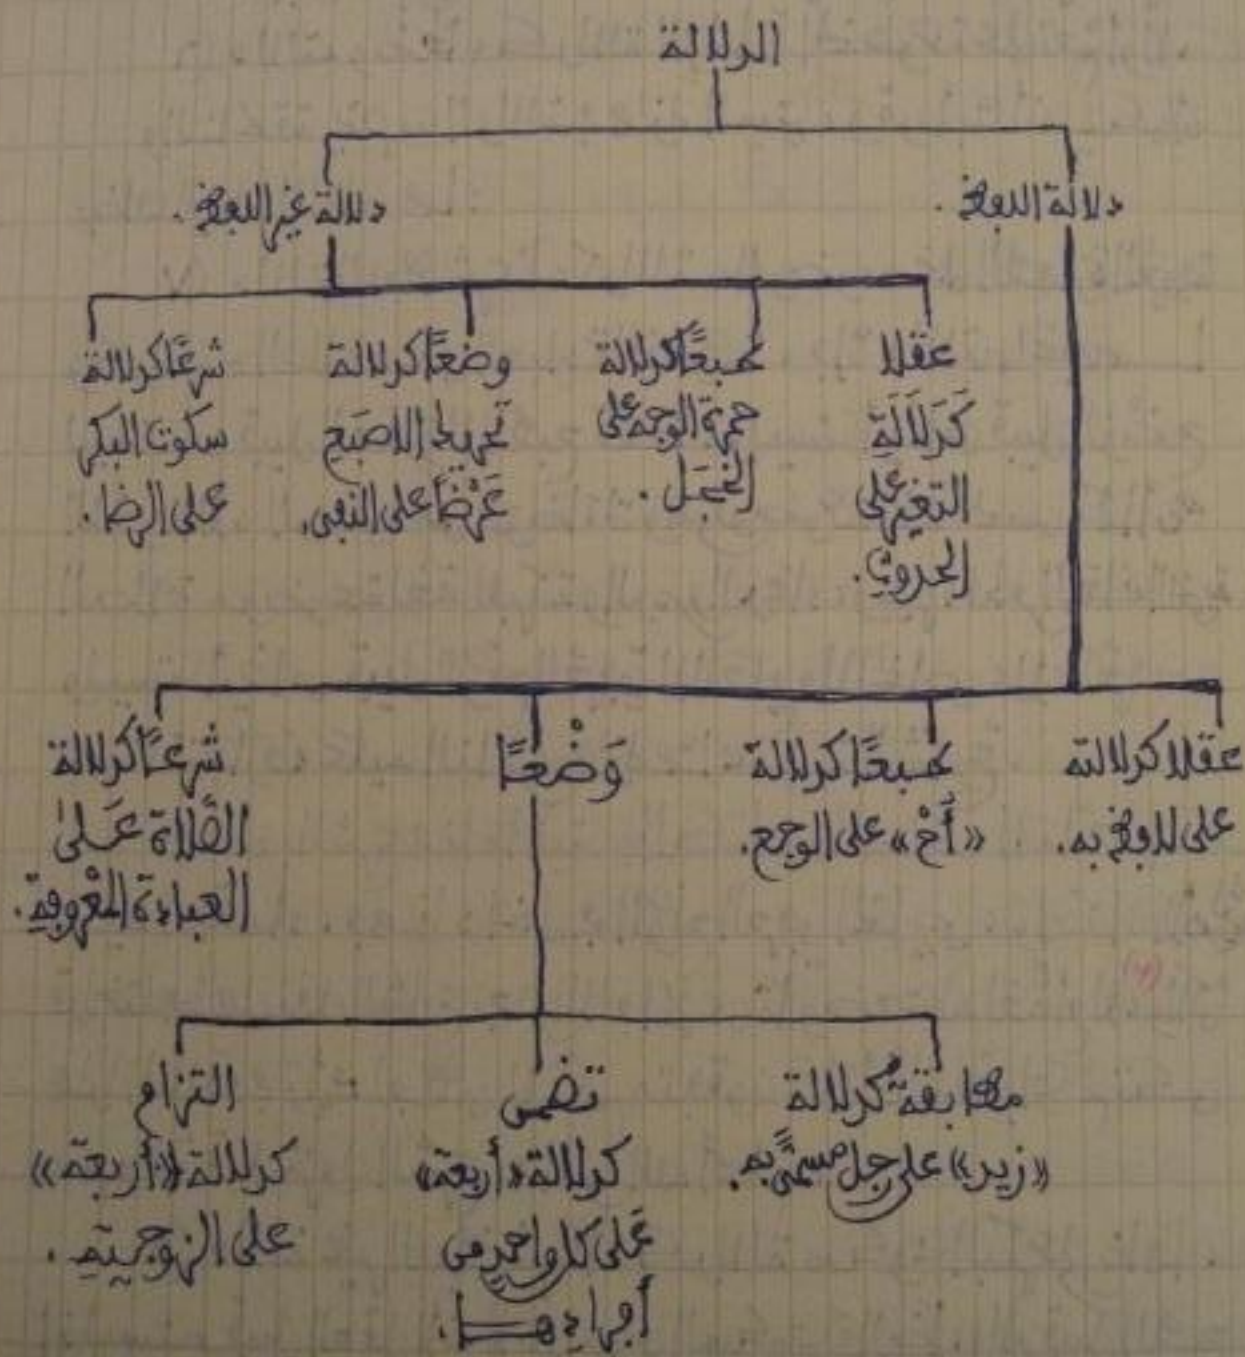 الدلالة
دلالة اللفظ.
دلالة غير اللفظ.
عقلا
كَدَلَالَةِ
التغير على
الحدوث.
طبعًا كدلالة
حمرة الوجه على
الخجَل.
وضعًا كدلالة
تحريك الاصبَع
عَرْضًا على النفي.
شرعًا كدلالة
سكوت البكر
على الرضا.
عقلا كدلالته
على لافظ به.
طبعًا كدلالة
«أَخْ» على الوجع.
وَضْعًا
شرعًا كدلالة
الصَّلاة عَلَىٰ
العبادة المعْروفةِ.
مطابقةً كدلالة
«زيد» على رجل مسمًّى به.
تضمن
كدلالة «أربعة»
عَلى كل واحدٍ من
أجزاءِها.
التزام
كدلالة «أربعة»
على الزوجيةِ.